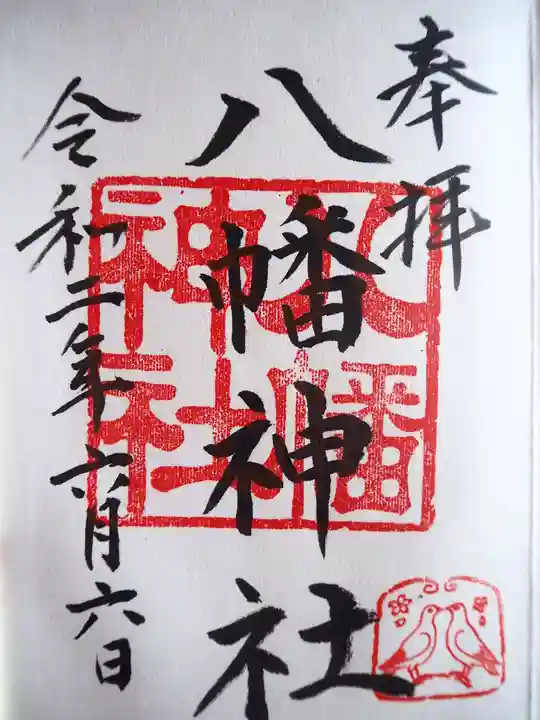 奉拝
八幡神社
八幡神社
令和二年六月六日